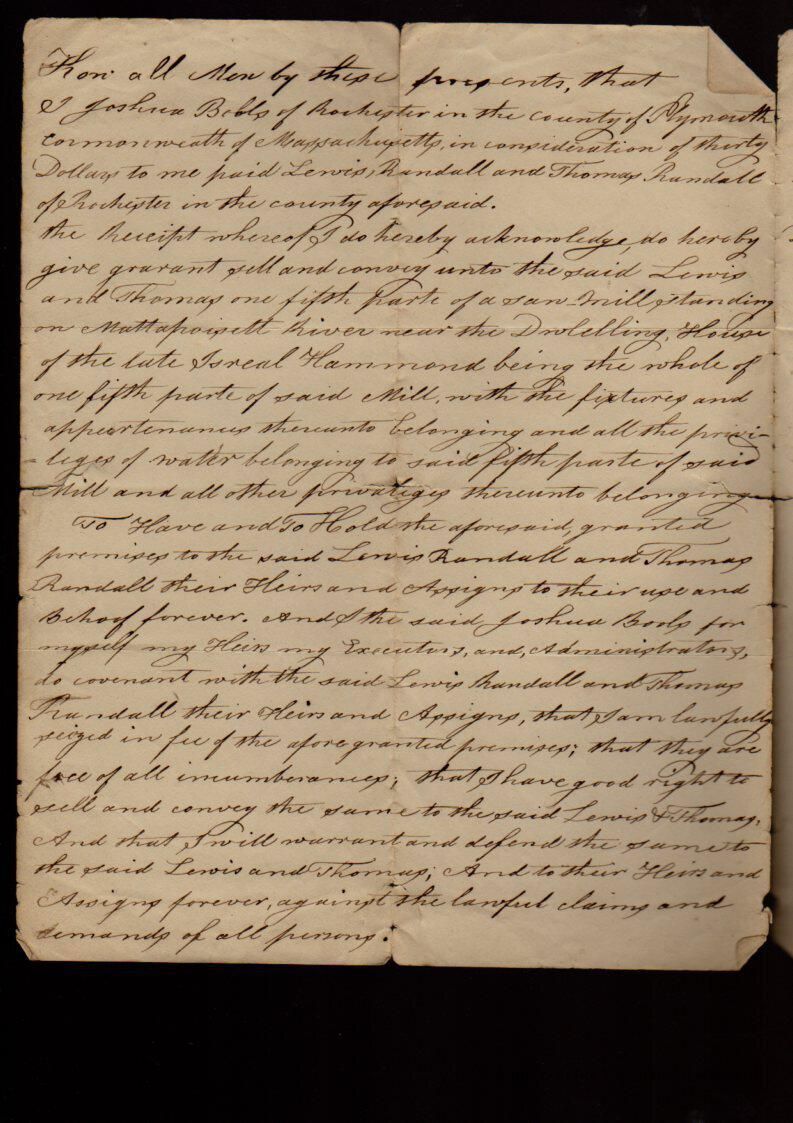 Kon all Men by these presents, that
I Joshua Bolls of Rochester in the county of Plymouth
commonweath of Massachusetts, in consideration of thirty
Dollars to me paid Lewis, Randall and Thomas Randall
of Rochester in the county aforesaid.
the Receipt whereof I do hereby acknowledge, do hereby
give grarant sell and convey unto the said Lewis
and Thomas one fifth parte of a saw-mill standing
on Mattapoisett River near the Dwlelling, House
of the late Isreal Hammond being the whole of
one fifth parte of said Mill, with the fixtures and
appurtenances thereunto belonging and all the privi-
-leges of water belonging to said fifth parte of said
Mill and all other privaleges thereunto belonging
To Have and To Hold the aforesaid, granted
premises to the said Lewis Randall and Thomas
Randall their Heirs and Assigns to their use and
Behoof forever. And I the said Joshua Bools for
myself my Heirs my Executors, and, Administrators,
do covenant with the said Lewis Randall and Thomas
Randall their Heirs and Assigns, that I am lawfully
seized in fee of the afore granted premises; that they are
free of all incumberances; that I have good right to
sell and convey the same to the said Lewis & Thomas,
And that I will warrant and defend the same to
the said Lewis and Thomas; And to their Heirs and
Assigns forever, against the lawful claims and
demands of all persons.